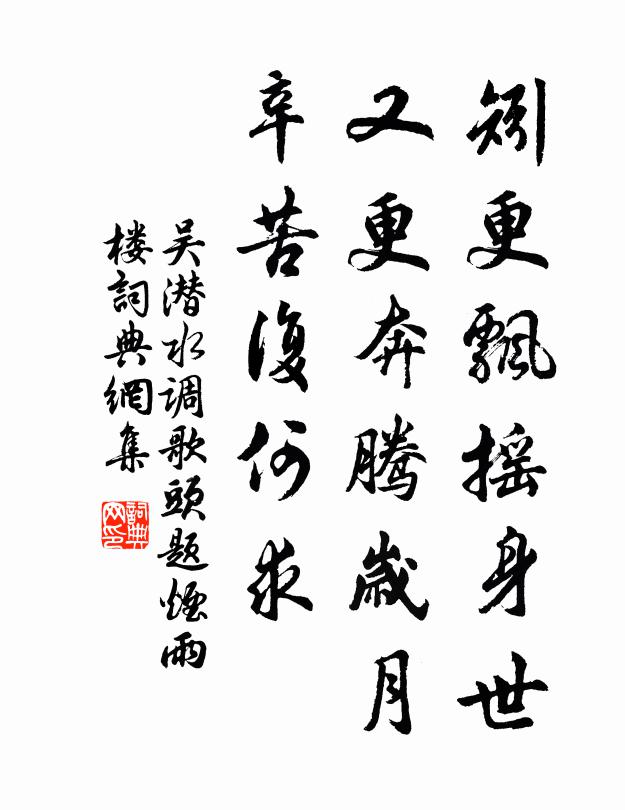 矧更飄摇身世
又更奔騰歲月
辛苦復何求
吴潜水调歌頭题煙雨
楼詞典網集
詞典
网印